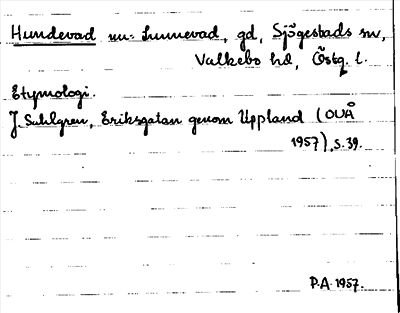 Hundevad nu: Sunnevad, gd, Sjögestads sn,
Valkebo hd, Östg. l.
Etymologi.
J. Sahlgren, Eriksgatan genom Uppland (OUÅ
1957), s. 39.
P.A. 1957.